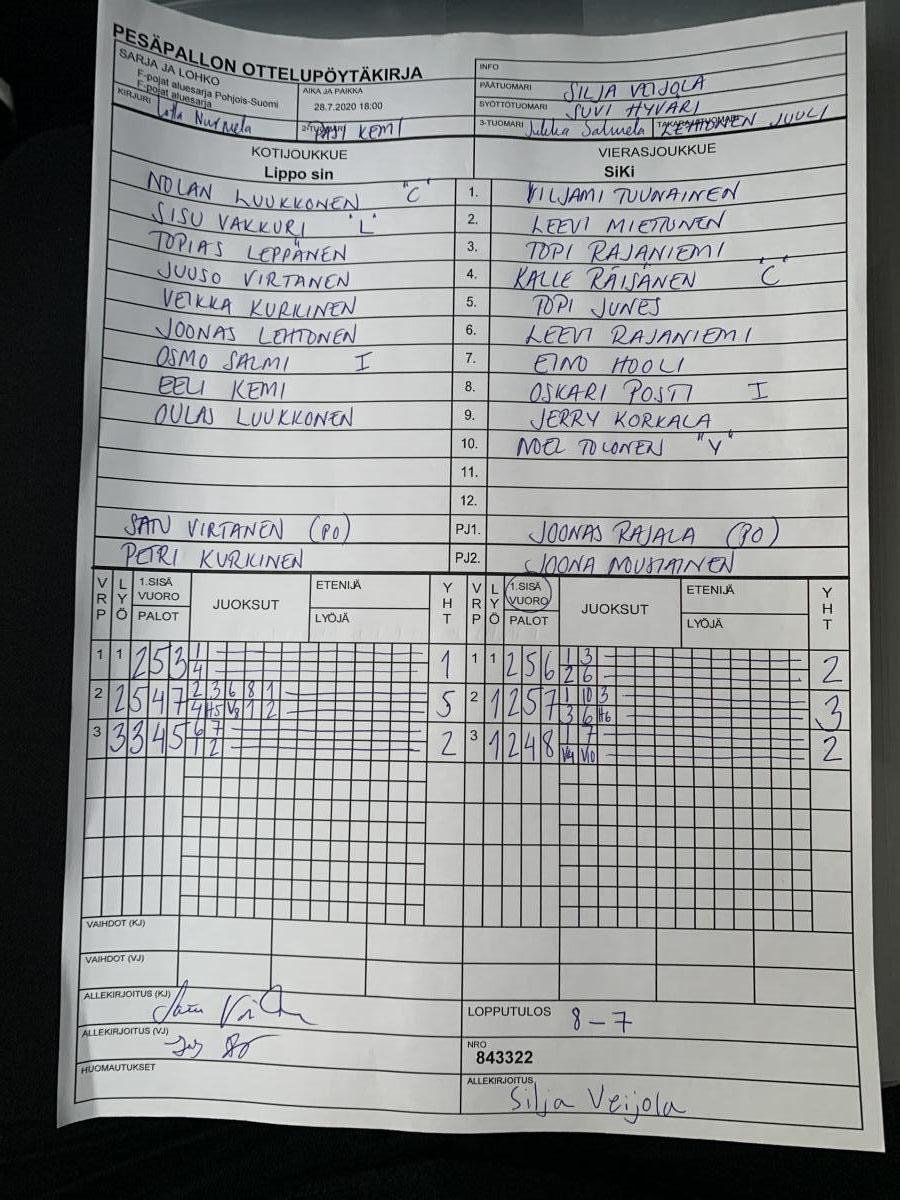 PESÄPALLON OTTELUPÖYTÄKIRJA
SARJA JA LOHKO
F-pojat aluesarja Pohjois-Suomi
F-pojat aluesarja
AIKA JA PAIKKA
28.7.2020 18:00
INFO
PÄÄTUOMARI SILJA VEIJOLA
SYÖTTÖTUOMARI SUVI HYVÄRI
KIRJURI Nurmela
2-TUOMARI PASI KEMI
3-TUOMARI Jukka Salmela TAKARAJATUOMARI LEHTONEN JUULI
KOTIJOUKKUE VIERASJOUKKUE
Lippo sin SiKi
NOLAN LUUKKONEN "C" 1. VILJAMI TUUNAINEN
SISU VAKKURI "L" 2. LEEVI MIETTUNEN
TOPIAS LEPPÄNEN 3. TOPI RAJANIEMI
JUUSO VIRTANEN 4. KALLE RÄISÄNEN "C"
VEIKKA KURKINEN 5. TOPI JUNES
JOONAS LEHTONEN 6. LEEVI RAJANIEMI
OSMO SALMI I 7. EINO HOOLI
EELI KEMI 8. OSKARI POSTI I
OULAS LUUKKONEN 9. JERRY KORKALA
10. NOEL TOLONEN "Y"
11.
12.
SATU VIRTANEN (PO) PJ1. JOONAS RAJALA (PO)
PETRI KURKINEN PJ2. JOONA MOUSIAINEN
VRP LYÖ 1.SISÄ VUORO PALOT JUOKSUT ETENIJÄ LYÖJÄ YHT VRP LYÖ 1.SISÄ VUORO PALOT JUOKSUT ETENIJÄ LYÖJÄ YHT
1 1 2 5 3 1 1 1 1 2 5 6 1 3 2
4 2 6
2 2 5 4 7 2 3 6 8 1 5 2 1 2 5 7 1 10 3 3
4 H5 V8 1 2 3 6 H6
3 3 3 4 5 6 7 2 3 1 2 4 8 1 7 2
1 2 V9 V10
VAIHDOT (KJ)
VAIHDOT (VJ)
ALLEKIRJOITUS (KJ)
LOPPUTULOS 8-7
ALLEKIRJOITUS (VJ)
NRO
843322
HUOMAUTUKSET
ALLEKIRJOITUS
Silja Veijola